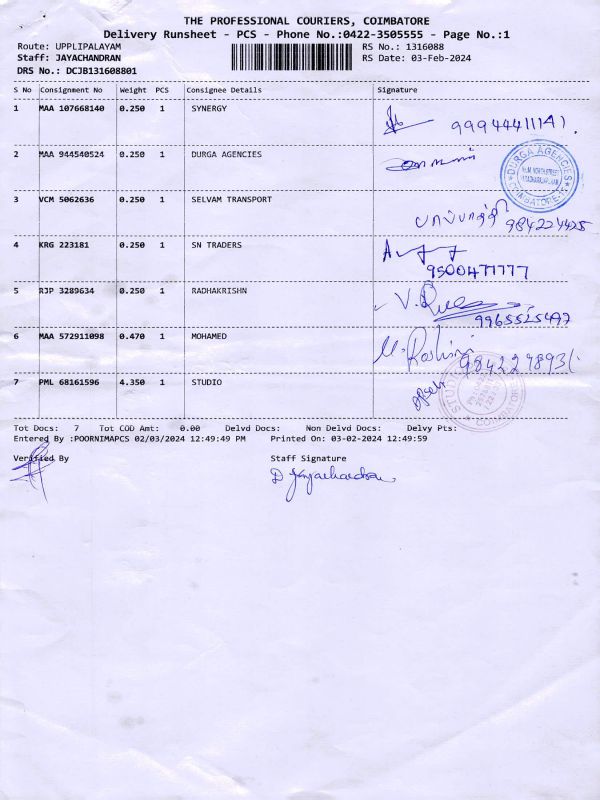 THE PROFESSIONAL COURIERS, COIMBATORE
Delivery Runsheet - PCS - Phone No.:0422-3505555 - Page No.:1
Route: UPPLIPALAYAM RS No.: 1316088
Staff: JAYACHANDRAN RS Date: 03-Feb-2024
DRS No.: DCJB131608801
S No Consignment No Weight PCS Consignee Details Signature
1 MAA 107668140 0.250 1 SYNERGY 99944411141.
2 MAA 944540524 0.250 1 DURGA AGENCIES DURGA AGENCIES COIMBATORE
3 VCM 5062636 0.250 1 SELVAM TRANSPORT
4 KRG 223181 0.250 1 SN TRADERS
5 RJP 3289634 0.250 1 RADHAKRISHN
9965525497
6 MAA 572911098 0.470 1 MOHAMED M. Roshini
7 PML 68161596 4.350 1 STUDIO STUDIO COIMBATORE
Tot Docs: 7 Tot COD Amt: 0.00 Delvd Docs: Non Delvd Docs: Delvy Pts:
Entered By :POORNIMAPCS 02/03/2024 12:49:49 PM Printed On: 03-02-2024 12:49:59
Verified By Staff Signature
D Jayachandran